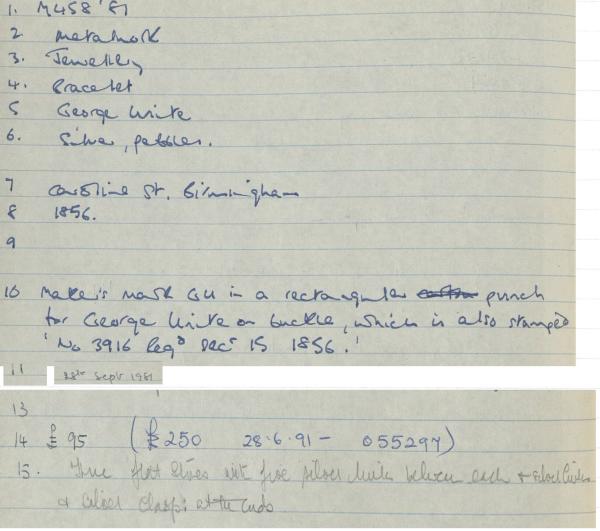 1. M458'81
2 Metalwork
3. Jewellery
4. Bracelet
5 George Unite
6. Silver, pebbles.
7 Caroline St. Birmingham
8 1856.
9
10 Maker's mark GU in a rectangular punch
for George Unite on buckle, which is also stamped
'No 3916 Regd Decr 15 1856.'
11 28th Sept 1981
13
14 £95 (£250 28.6.91 - 055297)
15. flat with five silver links between each + silver links
& silver clasps at the ends